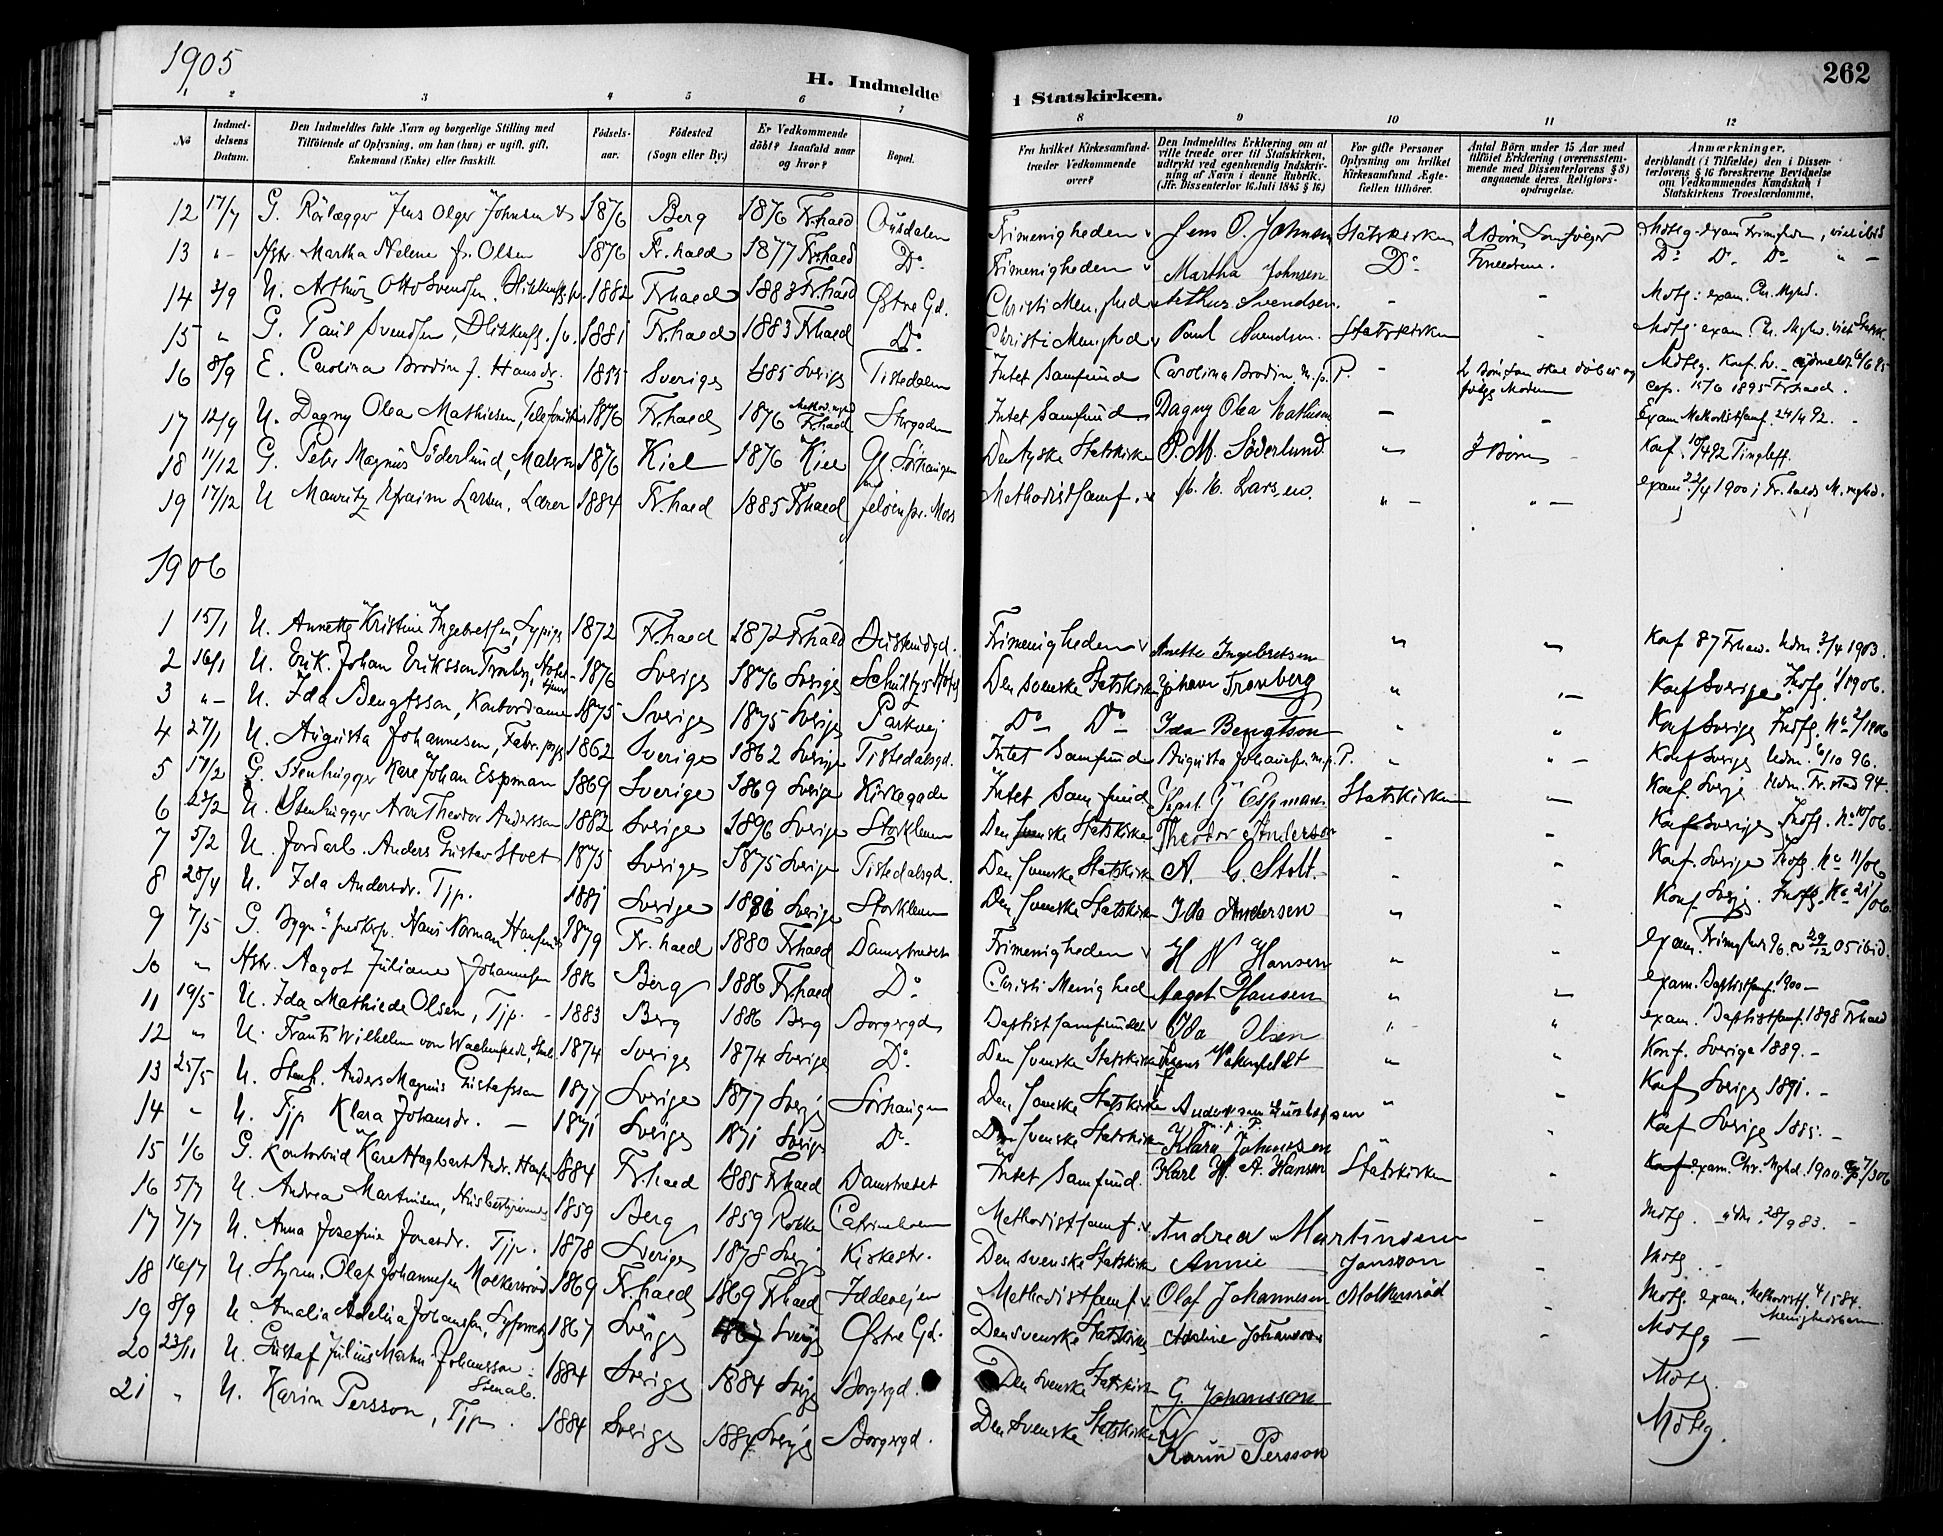 1905
262
H. Indmeldte i Statskirken.
1 2 3 4 5 6 7 8 9 10 11 12
No
Indmeldelsens Datum.
Den Indmeldtes fulde Navn og borgerlige Stilling med Tilföiende af Oplysning, om han (hun) er ugift, gift, Enkemand (Enke) eller fraskilt.
Födselsaar.
Födested (Sogn eller By.)
Er Vedkommende döbt? Isaafald naar og hvor?
Bopæl.
Fra hvilket Kirkesamfund træder Vedkommende over?
Den Indmeldtes Erklæring om at ville træde over til Statskirken, udtrykt ved egenhændig Indskrivning af Navn i denne Rubrik. (Jfr. Dissenterlov 16 Juli 1845 § 16)
For gifte Personer Oplysning om hvilket Kirkesamfund Ægtefællen tilhörer.
Antal Börn under 15 Aar med tilföiet Erklæring (overensstemmende med Dissenterlovens § 8) angaaende deres Religionsopdragelse.
Anmærkninger, deriblandt (i Tilfælde) den i Dissenterlovens § 16 foreskrevne Bevidnelse om Vedkommendes Kundskab i Statskirkens Troeslærdomme.
12 17/7 G. Rörlægger Jens Olger Johnsen 1876 Berg 1876 Frhald Frimenigheden Jens O. Johnsen Statskirken 2 Börn
13 " - Hstr. Martha Helene f. Olsen 1876 Fr.hald 1877 Frhald Do Frimenigheden Martha Johnsen Do Do Do Do
14 2/9 U. Arthur Otto Svendsen 1882 Frhald 1883 Frhald Østre Gd. Christi Menighed Arthur Svendsen - - Mdtg: exam. Chr. Mghd.
15 " G. Paul Svendsen 1881 Frhald 1883 Frhald Do Christi Menighed Paul Svendsen Statskirken -
16 8/9 E. Carolina Brodin f. Hansdr. 1855 Sverige 1855 Sverige Tistedalen Intet Samfund Carolina Brodin m.p.P. - 2 Börn
17 12/9 U. Dagny Olea Mathiesen, Telefonist 1876 Fr.hald 1876 Frhald Storgaden Intet Samfund Dagny Olea Mathiesen - - Exam Methodistsamf. 24/4 92.
18 11/12 G. Peter Magnus Söderlund, Maler 1876 Kiel 1876 Kiel Gl. Sörhaugen Den tyske Statskirke P. M. Söderlund " 3 Börn Konf.
19 17/12 U Mauritz Efraim Larsen, Lærer 1884 Fr.hald 1885 Frhald Jeløen pr. Moss Methodistsamf. M. E. Larsen " - " - exam 22/4 1900 i Fr.halds M.mghd.
1906
1 15/1 U. Annette Kristine Ingebretsen, Sypige 1872 Fr.hald 1872 Frhald Frimenigheden Anette Ingebretsen " " Konf 87 Frhald. Udm. 3/4 1903.
2 16/1 U. Erik Johan Eriksson Tronberg 1876 Sverige 1876 Sverige Schultz's Hotel Den svenske Statskirke Johan Tronberg " " Konf Sverige
3 " - U. Ida Bengtsson, Kontordame 1875 Sverige 1875 Sverige Parkvej Do Do Ida Bengtson " " Konf Sverige
4 27/1 U. Augusta Johannesen, Fabr.pige 1862 Sverige 1862 Sverige Tistedalsgd. Intet Samfund Augusta Johannesen m.p.P. " " - Konf Sverige Udm. 6/10 96.
5 17/2 G. Stenhugger Karl Johan Espman 1869 Sverige 1869 Sverige Kirkegade Intet Samfund Karl J. Espman Statskirken - Konf. Sverige Udm. Fr.stad 94.
6 27/2 U. Stenhugger Aron Theodor Andersson 1882 Sverige 1896 Sverige Storkleven Den svenske Statskirke Theodor Anderson - " Konf Sverige
7 5/2 U. Jordarb. Anders Gustav Stolt 1875 Sverige 1875 Sverige Tistedalsgd. Den svenske Statskirke A. G. Stolt. - " Konf. Sverige No 11/06
8 28/4 U. Ida Andersdr. Tjp. 1881 Sverige 1881 Sverige Storkleven Den svenske Statskirke Ida Andersen " " Konf. Sverige No 21/06
9 7/5 G. Hans Norman Hansen 1879 Fr.hald 1880 Frhald Damstrædet Frimenigheden H N Hansen " " exam. 29/12 05 ibid.
10 " Hstr. Aagot Juliane Johannesen 1886 Berg 1886 Frhald Do Christi Menighed Aagot Hansen " " exam. Baptistsamf. 1900 -
11 19/5 U. Ida Mathilde Olsen, Tjp. 1883 Berg 1886 Berg Borgergd Baptistsamfundet Ida Olsen " " exam. Baptistsamf. 1898 Frhald
12 " U. Frants Wilhelm von Wachenfeldt 1874 Sverige 1874 Sverige Do Den svenske Statskirke Frans Vakenfeldt " " Konf. Sverige 1889. -
13 25/5 U. Stenh. Anders Magnus Gustafsson 1877 Sverige 1877 Sverige Sörhaugen Den svenske Statskirke Anders " " Konf Sverige 1891. -
14 " U. Tjp Klara Johansdr. - 1871 Sverige 1871 Sverige Do Den svenske Statskirke Klara Johanssen " Konf Sverige 1885. -
15 1/6 G. Kontorbud Karl Hagbart Andr. Hansen 1884 Fr.hald 1885 Frhald Damstrædet Intet Samfund Karl H. A. Hansen Statskirken " exam. Chr. Mghd. 1900
16 5/7 U. Andrea Martinsen, Husbestyrerinde 1859 Berg 1859 Rokke Catrineholm Methodistsamf. Andrea Martinsen - Mdtg. udm. 28/9 83.
17 7/7 U. Anna Josefine Jonasdr. Tjp. 1878 Sverige 1878 Sverige Kirkestr. Den svenske Statskirke Annie Jonsson - Mdtg. -
18 16/7 U. Styrm. Olaf Johannesen Molkersröd 1869 Fr.hald 1869 Frhald Iddevejen Methodistsamf. Olaf Johannesen Molkersröd - Mdtg. exam. Methodistf. 4/5 84. Menighedsbarn
19 8/9 U. Amalia Adelina Johansson 1867 Sverige 1867 Sverige Østre Gd. Den svenske Statskirke Adeline Johansson - Mdtg -
20 23/11 U. Gustaf Julius Martin Johansson Stenarb. 1884 Sverige 1884 Sverige Borgergd. Den svenske Statskirke G. Johansson Mdtg.
21 " U. Karin Persson, Tjp. 1884 Sverige 1884 Sverige Borgergd. Den svenske Statskirke Karin Persson Mdtg.